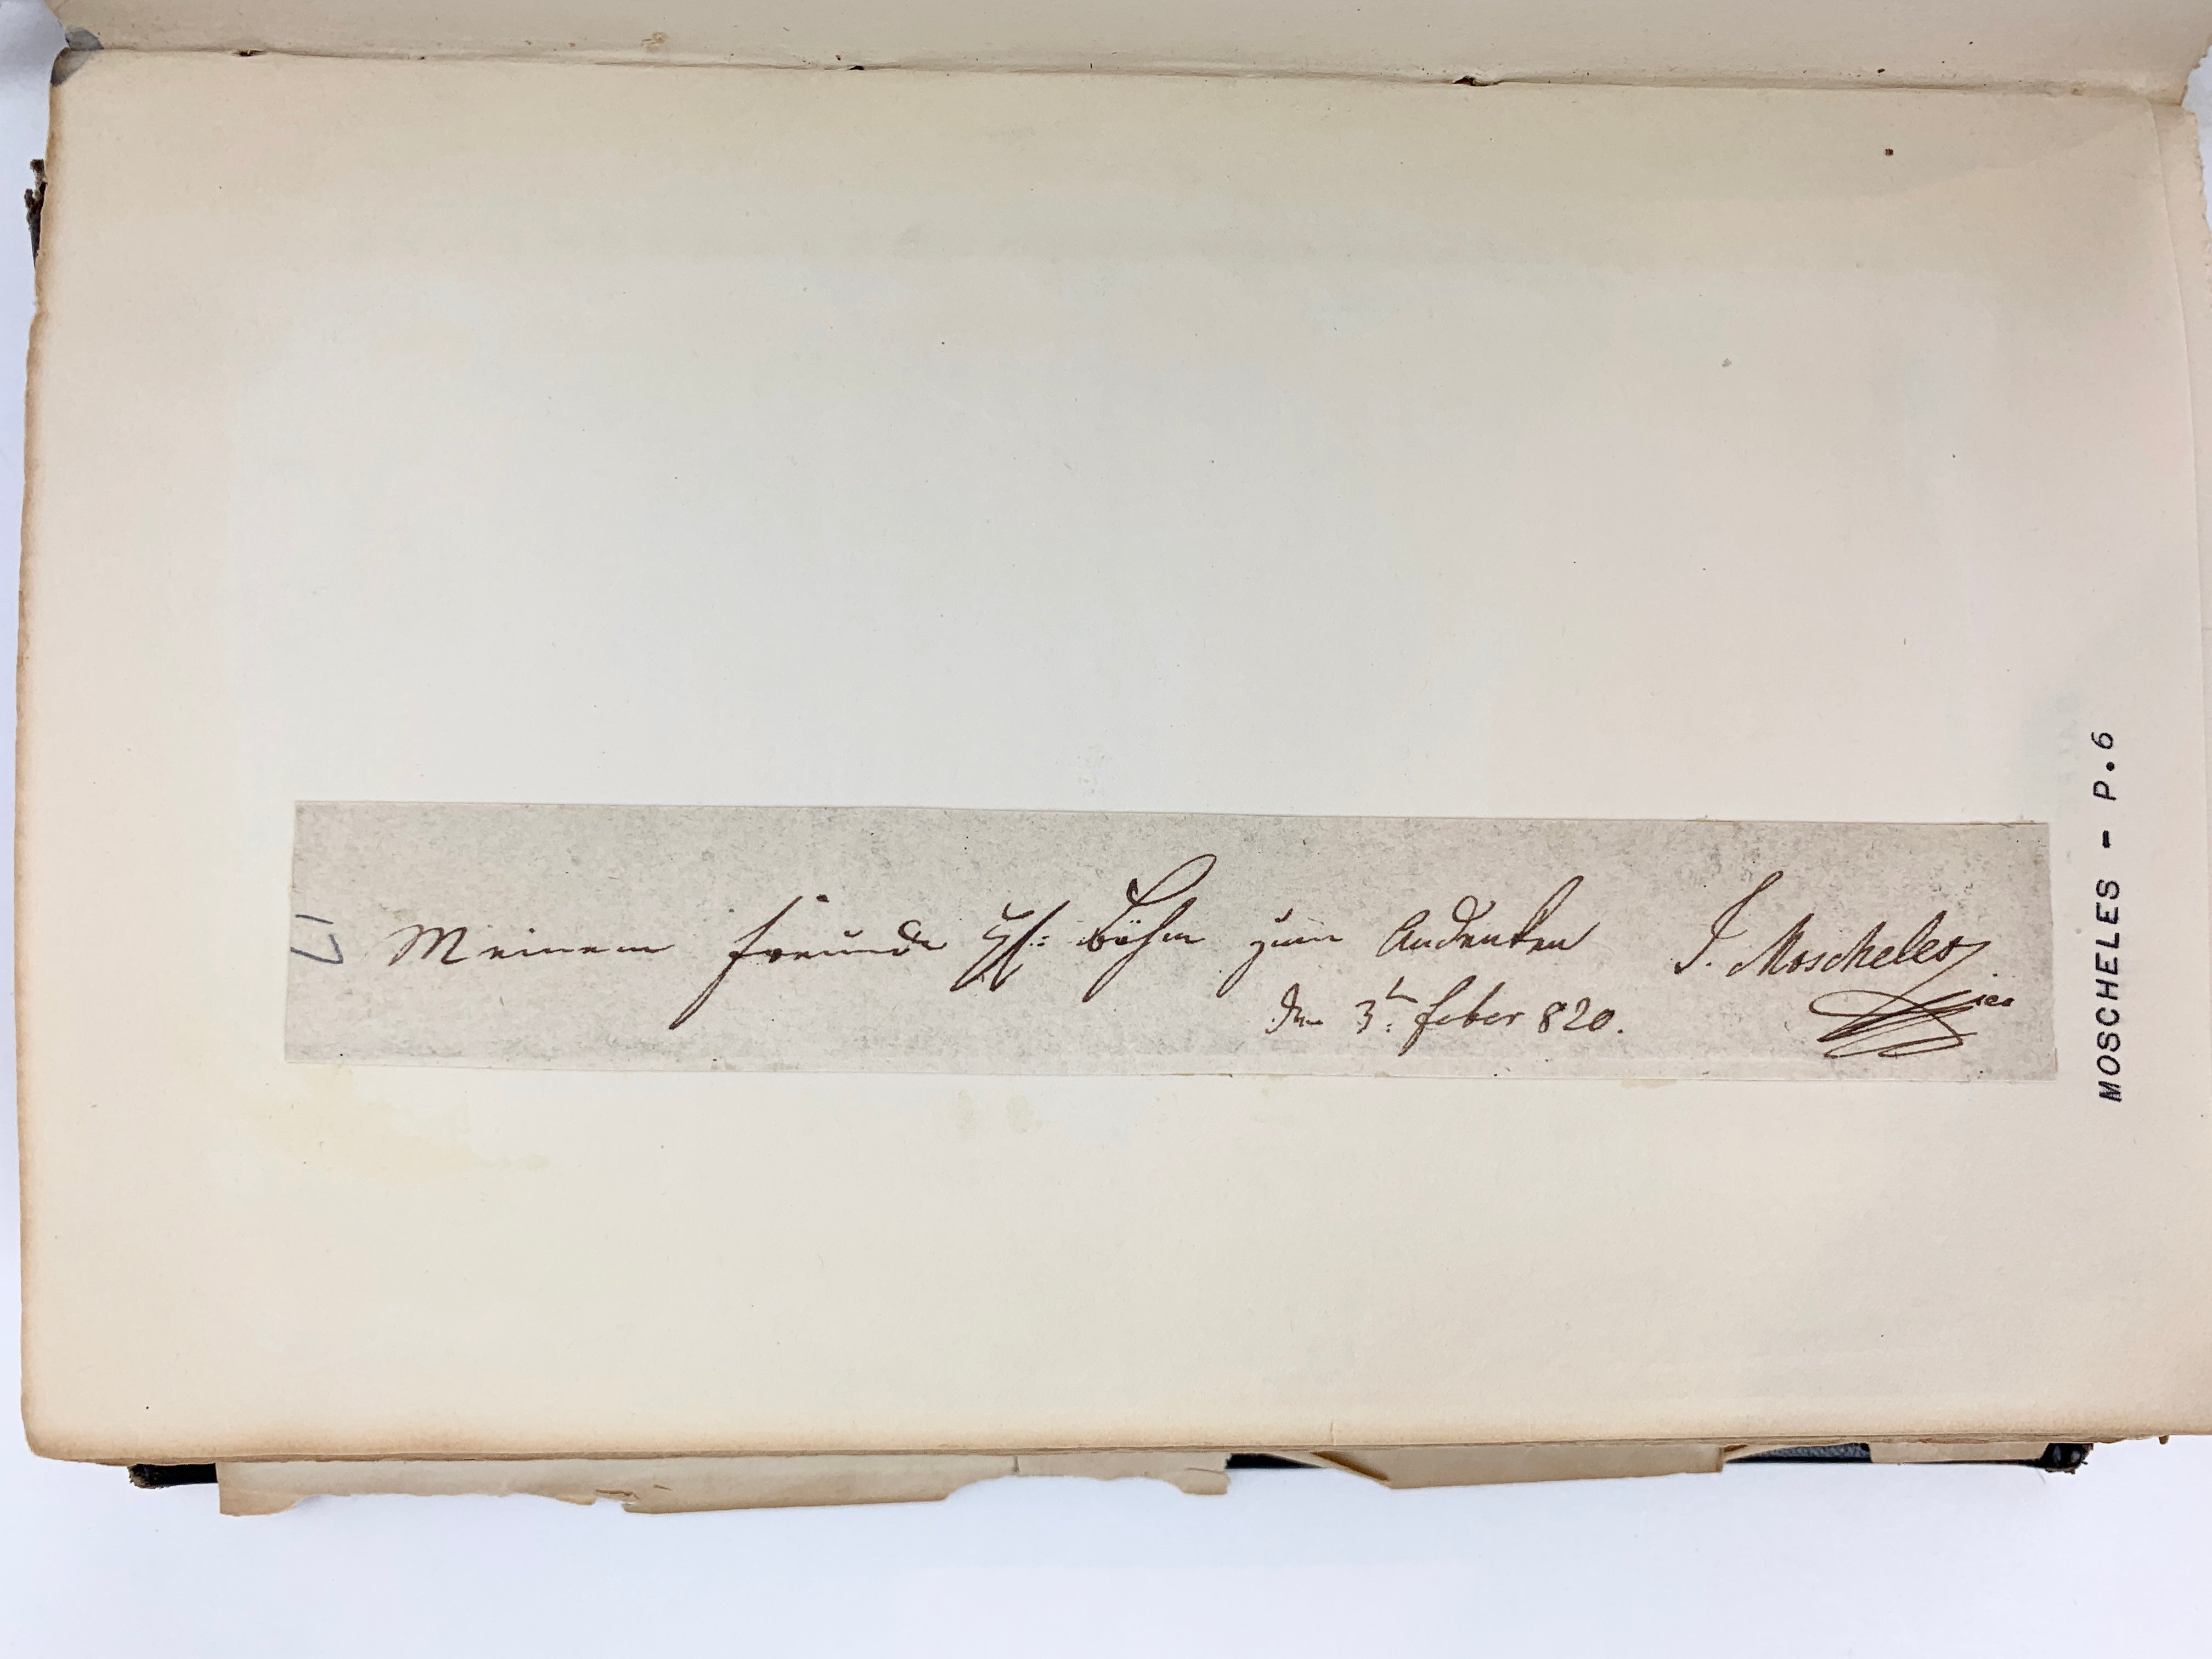 17
Meinem Freunde Hr: Böhm zum Andenken J. Moscheles
den 3t: feber 820.
MOSCHELES - P.6